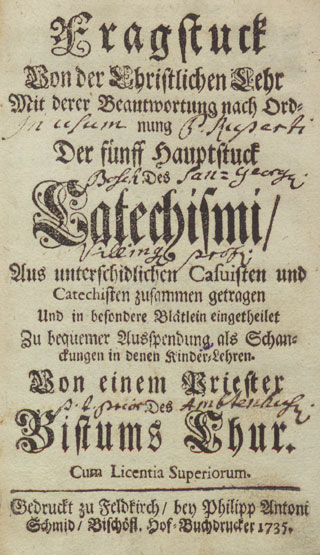 Fragstuck
Von der Christlichen Lehr
Mit derer Beantwortung nach Ord-
In usum nung P. Ruperti
Der fünff Hauptstuck
Des San-Georg:
Catechismi/
Villing: prof:
Aus unterschidlichen Casuisten und
Catechisten zusammen getragen
Und in besondere Blätlein eingetheilet
Zu bequemer Ausspendung als Schan-
ckungen in denen Kinder-Lehren.
Von einem Priester
Des
Bistums Chur.
Cum Licentia Superiorum.
Gedruckt zu Feldkirch/ bey Philipp Antoni
Schmid/ Bischöfl. Hof-Buchdrucker 1735.